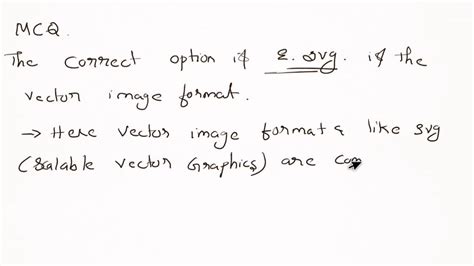 MCQ.
The correct option is 2. svg. is the
vector image format.
→ Here vector image formats like svg
(Scalable vector Graphics) are com